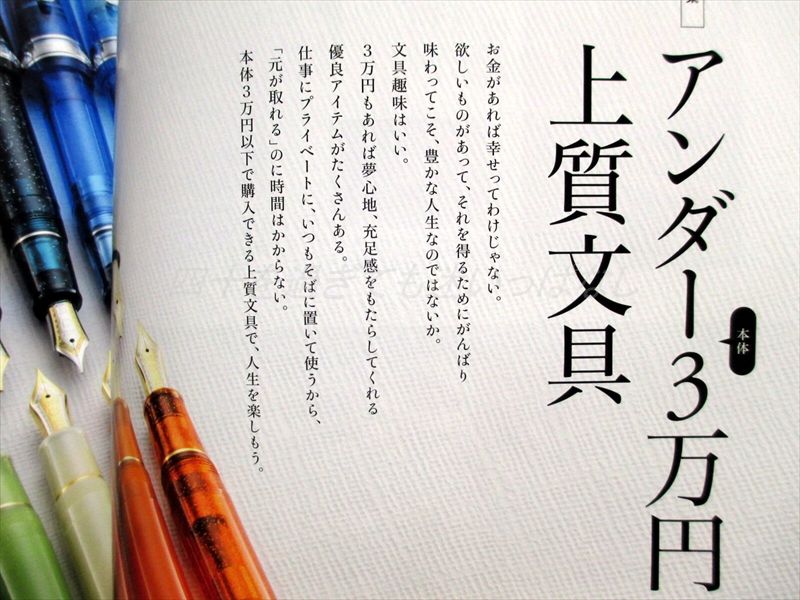 アンダー3万円
本体
上質文具
お金があれば幸せってわけじゃない。
欲しいものがあって、それを得るためにがんばり
味わってこそ、豊かな人生なのではないか。
文具趣味はいい。
3万円もあれば夢心地、充足感をもたらしてくれる
優良アイテムがたくさんある。
仕事にプライベートに、いつもそばに置いて使うから、
「元が取れる」のに時間はかからない。
本体3万円以下で購入できる上質文具で、人生を楽しもう。